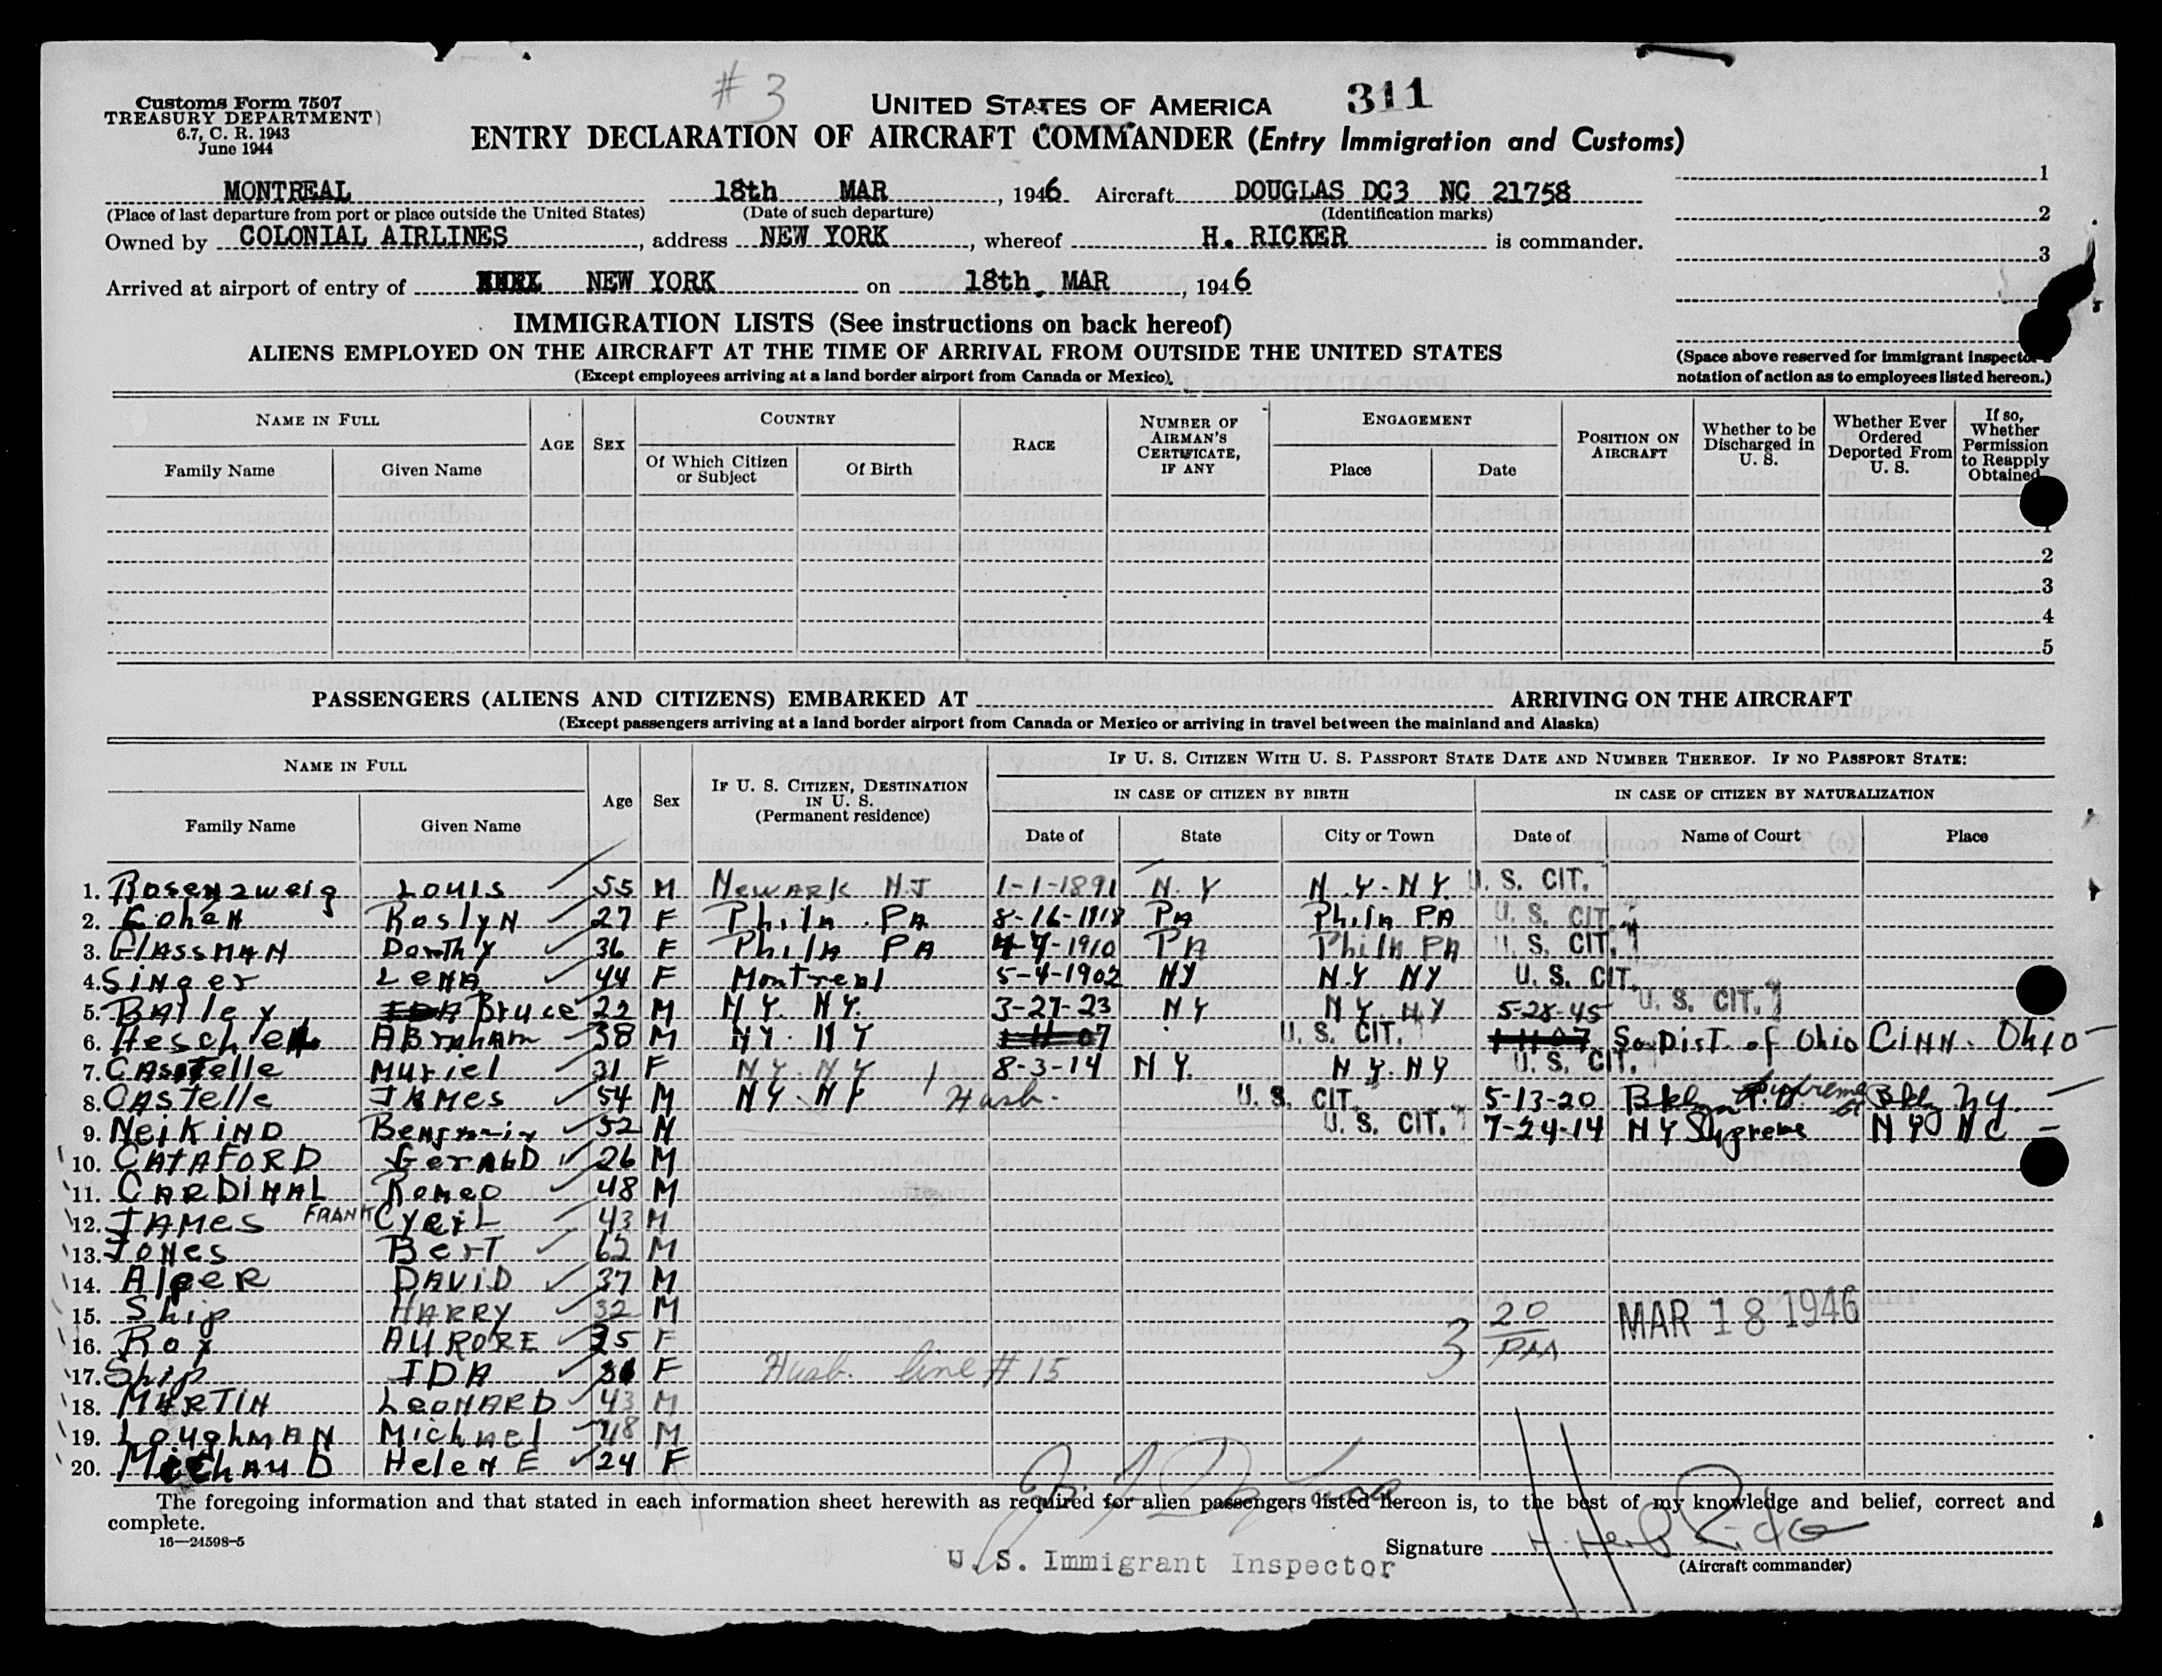 # 3
Customs Form 7507
TREASURY DEPARTMENT)
6.7, C. R. 1943
June 1944
UNITED STATES OF AMERICA 311
ENTRY DECLARATION OF AIRCRAFT COMMANDER (Entry Immigration and Customs)
MONTREAL 18th MAR , 1946 Aircraft DOUGLAS DC3 NC 21758 1
(Place of last departure from port or place outside the United States) (Date of such departure) (Identification marks) 2
Owned by COLONIAL AIRLINES , address NEW YORK , whereof H. RICKER is commander. 3
Arrived at airport of entry of NEW YORK on 18th MAR , 1946
IMMIGRATION LISTS (See instructions on back hereof)
ALIENS EMPLOYED ON THE AIRCRAFT AT THE TIME OF ARRIVAL FROM OUTSIDE THE UNITED STATES
(Except employees arriving at a land border airport from Canada or Mexico).
(Space above reserved for immigrant inspector's
notation of action as to employees listed hereon.)
NAME IN FULL AGE SEX COUNTRY RACE NUMBER OF AIRMAN'S CERTIFICATE, IF ANY ENGAGEMENT POSITION ON AIRCRAFT Whether to be Discharged in U. S. Whether Ever Ordered Deported From U. S. If so, Whether Permission to Reapply Obtained
Family Name Given Name Of Which Citizen or Subject Of Birth Place Date
1
2
3
4
5
PASSENGERS (ALIENS AND CITIZENS) EMBARKED AT ARRIVING ON THE AIRCRAFT
(Except passengers arriving at a land border airport from Canada or Mexico or arriving in travel between the mainland and Alaska)
NAME IN FULL Age Sex IF U. S. CITIZEN, DESTINATION IN U. S. (Permanent residence) IF U. S. CITIZEN WITH U. S. PASSPORT STATE DATE AND NUMBER THEREOF. IF NO PASSPORT STATE:
IN CASE OF CITIZEN BY BIRTH IN CASE OF CITIZEN BY NATURALIZATION
Family Name Given Name Date of State City or Town Date of Name of Court Place
1. Rosenzweig Louis 55 M Newark N.J 1-1-1891 N.Y N.Y-N.Y. U. S. CIT.
2. Cohen Roslyn 27 F Phila. PA 8-16-1918 PA Phila PA U. S. CIT.
3. Glassman Dorthy 36 F Phila PA 4-4-1910 PA Phila PA U. S. CIT.
4. Singer Lena 44 F Montreal 5-4-1902 NY N.Y NY U. S. CIT.
5. Bailey Bruce 22 M N.Y. N.Y. 3-27-23 NY N.Y. N.Y 5-28-45 U. S. CIT.
6. Abraham 38 M NY. NY U. S. CIT. So. Dist. of Ohio Cinn. Ohio
7. Castelle Muriel 31 F N.Y. N.Y 8-3-14 N.Y. N.Y. NY U. S. CIT.
8. Castelle James 54 M NY. NY Husb. U. S. CIT. 5-13-20 Bklyn Supreme Ct Bkly N.y.
9. Neikind Benjamin 52 M U. S. CIT. 7-24-14 NY Supreme NY NC
10. Cataford Gerald 26 M
11. Cardinal Romeo 48 M
12. James Frank Cyril 43 M
13. Jones Bert 62 M
14. Alper David 37 M
15. Ship Harry 32 M 3 20 PM MAR 18 1946
16. Roy Aurore 25 F
17. Ship Ida F Husb. line # 15
18. Martin Leonard 43 M
19. Loughman Michael 48 M
20. Michaud Helen E 24 F
The foregoing information and that stated in each information sheet herewith as required for alien passengers listed hereon is, to the best of my knowledge and belief, correct and
complete.
16—24598-5
U. S. Immigrant Inspector
Signature
(Aircraft commander)